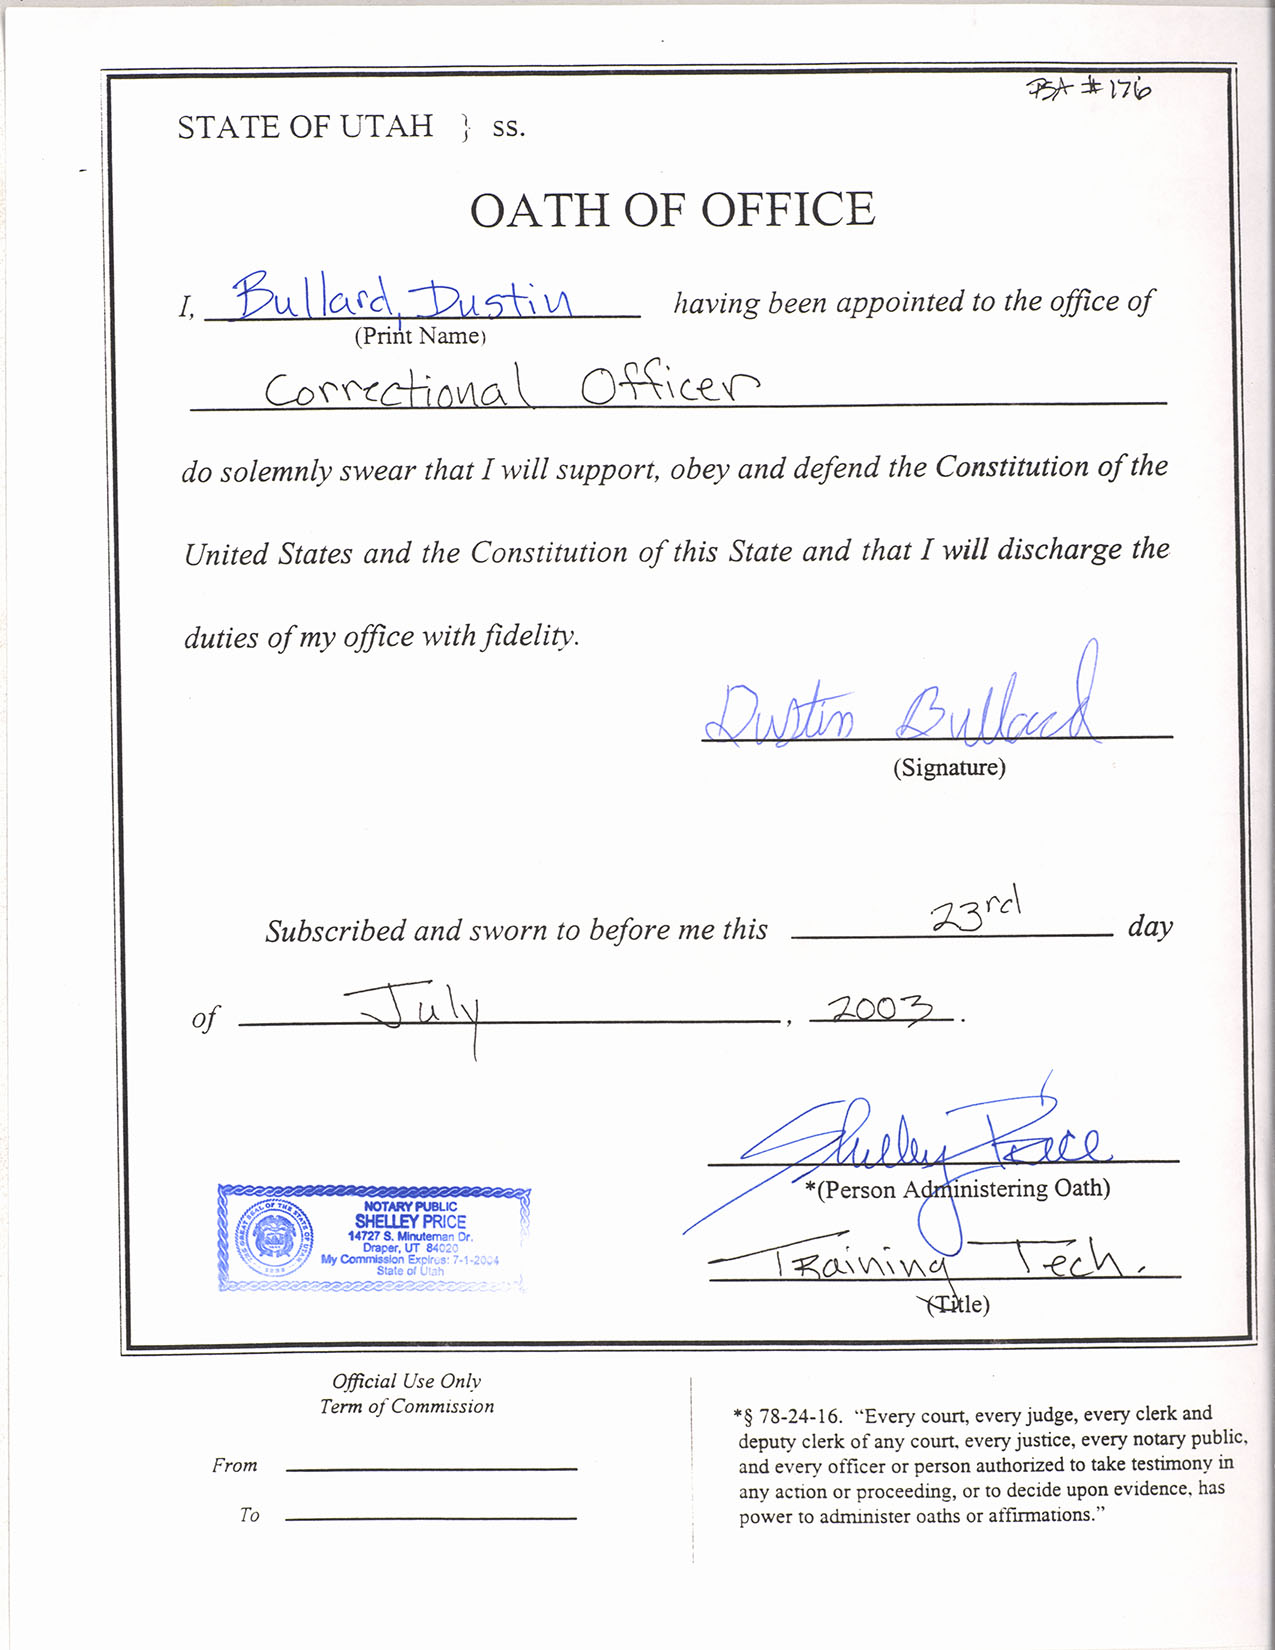 BA #176
STATE OF UTAH } ss.
OATH OF OFFICE
I, Bullard, Dustin having been appointed to the office of
(Print Name)
Correctional Officer
do solemnly swear that I will support, obey and defend the Constitution of the
United States and the Constitution of this State and that I will discharge the
duties of my office with fidelity.
Dustin Bullard
(Signature)
Subscribed and sworn to before me this 23rd day
of July, 2003.
Shelley Price
*(Person Administering Oath)
Training Tech.
(Title)
NOTARY PUBLIC
SHELLEY PRICE
14727 S. Minuteman Dr.
Draper, UT 84020
My Commission Expires: 7-1-2004
State of Utah
Official Use Only
Term of Commission
From
To
*§ 78-24-16. “Every court, every judge, every clerk and
deputy clerk of any court, every justice, every notary public,
and every officer or person authorized to take testimony in
any action or proceeding, or to decide upon evidence, has
power to administer oaths or affirmations.”